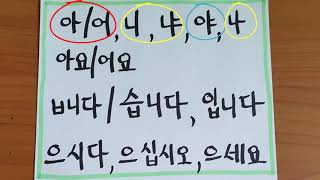 아/어, 니, 냐, 야, 나
아요/어요
ㅂ니다/습니다, 입니다
으시다, 으십시오, 으세요